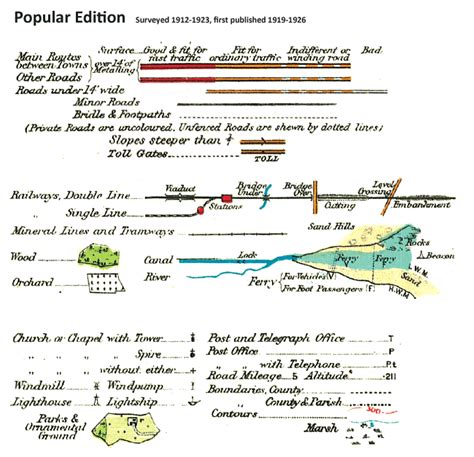 Popular Edition Surveyed 1912-1923, first published 1919-1926
Surface Good & fit for fast traffic Fit for ordinary traffic Indifferent or winding road Bad
Main Routes between Towns over 14' of Metalling
Other Roads
Roads under 14' wide
Minor Roads
Bridle & Footpaths
(Private Roads are uncoloured. Unfenced Roads are shewn by dotted lines)
Slopes steeper than
Toll Gates TOLL
Railways, Double Line Viaduct Stations Bridge Under Bridge Over Cutting Level Crossing Embankment
" Single Line
Mineral Lines and Tramways
Sand Hills
Rocks
Wood Canal Lock Ferry Ferry Beacon
Orchard River Ferry (For Vehicles V) (For Foot Passengers F) L.W.M.
H.W.M.
Church or Chapel with Tower Post and Telegraph Office T
" " " " Spire Post Office P
" " " without either " " with Telephone P.t
Windmill Windpump Road Mileage 5 Altitude ·211
Lighthouse Lightship Boundaries, County
Parks & Ornamental Ground " County & Parish
Contours 300
Marsh